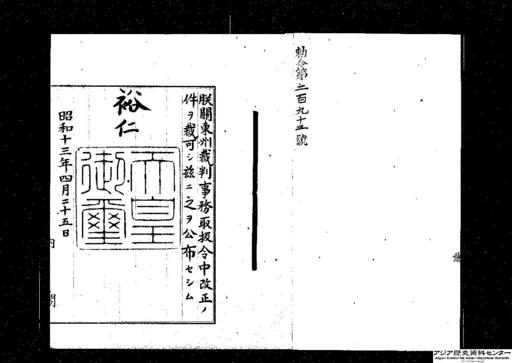 勅令第二百九十五號
朕關東州裁判事務取扱令中改正ノ
件ヲ裁可シ茲ニ之ヲ公布セシム
裕仁
天皇
御璽
昭和十三年四月二十五日
内閣
アジア歴史資料センター
Japan Center for Asian Historical Records